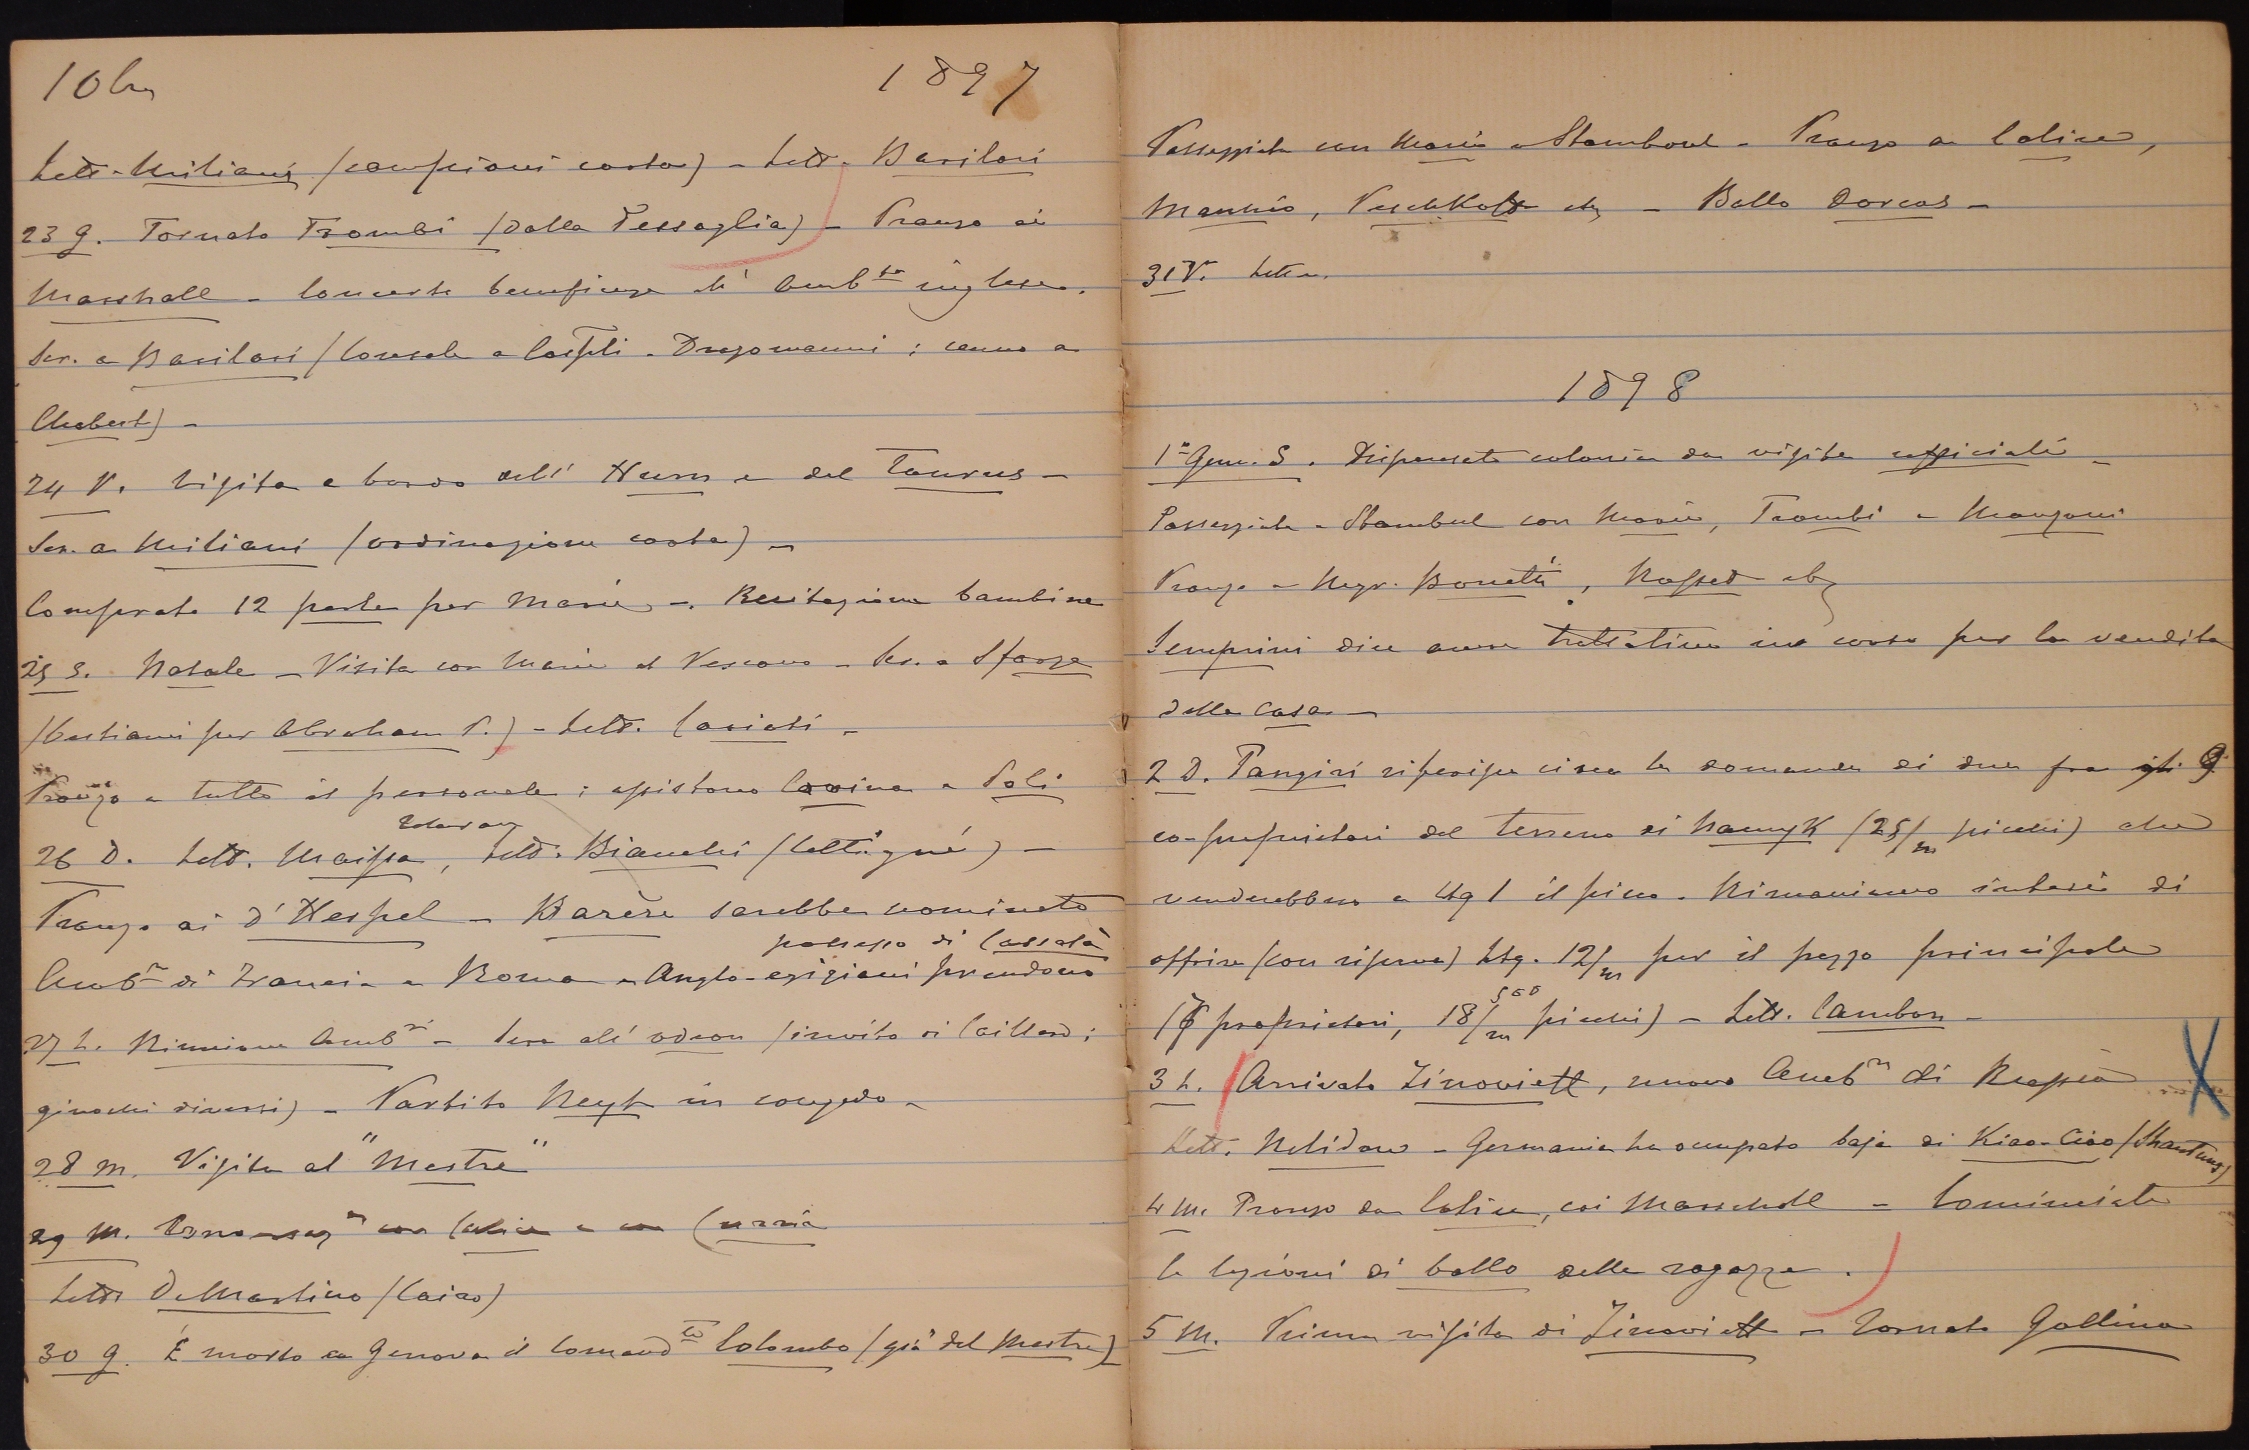 10bre 1897
Lett. Miliani (campioni carta) - Lett. Basilari
23 G. Tornato Trombi (dalla Tessaglia) - Pranzo ai
Marshall - Concerto beneficenza all' Ambta inglese.
Scr. a Basilari (Console a Cospoli - Dragomanni ; cenno a
Chabert) -
24 V. Visita a bordo dell' Hum e del Taurus -
Scr. a Miliani (ordinazione carta) -
Comperato 12 perle per Maria -. Recitazione bambine
25 S. Natale - Visita con Maria al Vescovo - Scr. a Sforza
per Abraham P.) - Lett. Cariati -
Pranzo a tutto il personale ; assistono Cavina e Poli
26 D. Lett. Maissa, Lett. Bianchi (Cettigné) -
Pranzo ai d'Hespel - Barère sarebbe nominato
possesso di Cassala
Ambre di Francia a Roma - Anglo-egiziani prendono
27 L. Riunione Ambri - Sera all' odeon (invito di Caillard ;
giuochi diversi) - Partito Neyt in congedo -
28 M. Visita al "Mestre"
29 M.
Lett. De Martino (Cairo)
30 G. È morto a Genova il Comandte Colombo (già del Mestre)
Passeggiata con Maria a Stamboul - Pranzo a Calice,
ecc - Ballo Dorcas -
31 V. Lett.
1898
1° Genn. S. Dispensata colonia da visita ufficiali -
Passeggiata a Stambul con Maria, Trombi e Mangoni
Pranzo a Mgr. Bonetti, ecc
Semprini dice avere trattativa in corso per la vendita
della casa -
2 D. Tangiri riferisce circa la domanda di due fra gli 9
co-proprietari del terreno di Namyk (25/m picchi) che
venderebbero a Ltq 1 il picco. Rimaniamo intesi di
offrire (con riserva) Ltq. 12/m per il pezzo principale
(7 proprietari, 18/m 500 picchi) - Lett. Cambon -
3 L. Arrivato Zinovieff, nuovo Ambre di Russia
Lett. Nelidow - Germania ha occupato baja di Kiao-Ciao (Shantung)
4 M. Pranzo da Calice, coi Marschall - Cominciate
le lezioni di ballo delle ragazze.
5 M. Prima visita di Zinovieff - Tornato Gallina